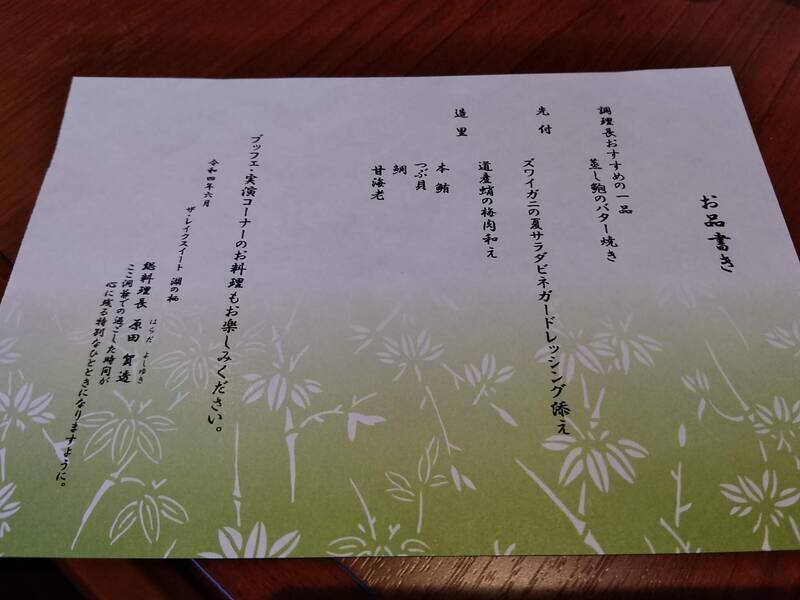 お品書き
調理長おすすめの一品
蒸し鮑のバター焼き
先付
ズワイガニの夏サラダビネガードレッシング添え
道産蛸の梅肉和え
造里
本鮪
つぶ貝
鯛
甘海老
ブッフェ・実演コーナーのお料理もお楽しみください。
令和四年六月
ザ・レイクスイート 湖の栖
総料理長 原田 賀造
はらだ よしゆき
ここ洞爺での過ごした時間が
心に残る特別なひとときになりますように。